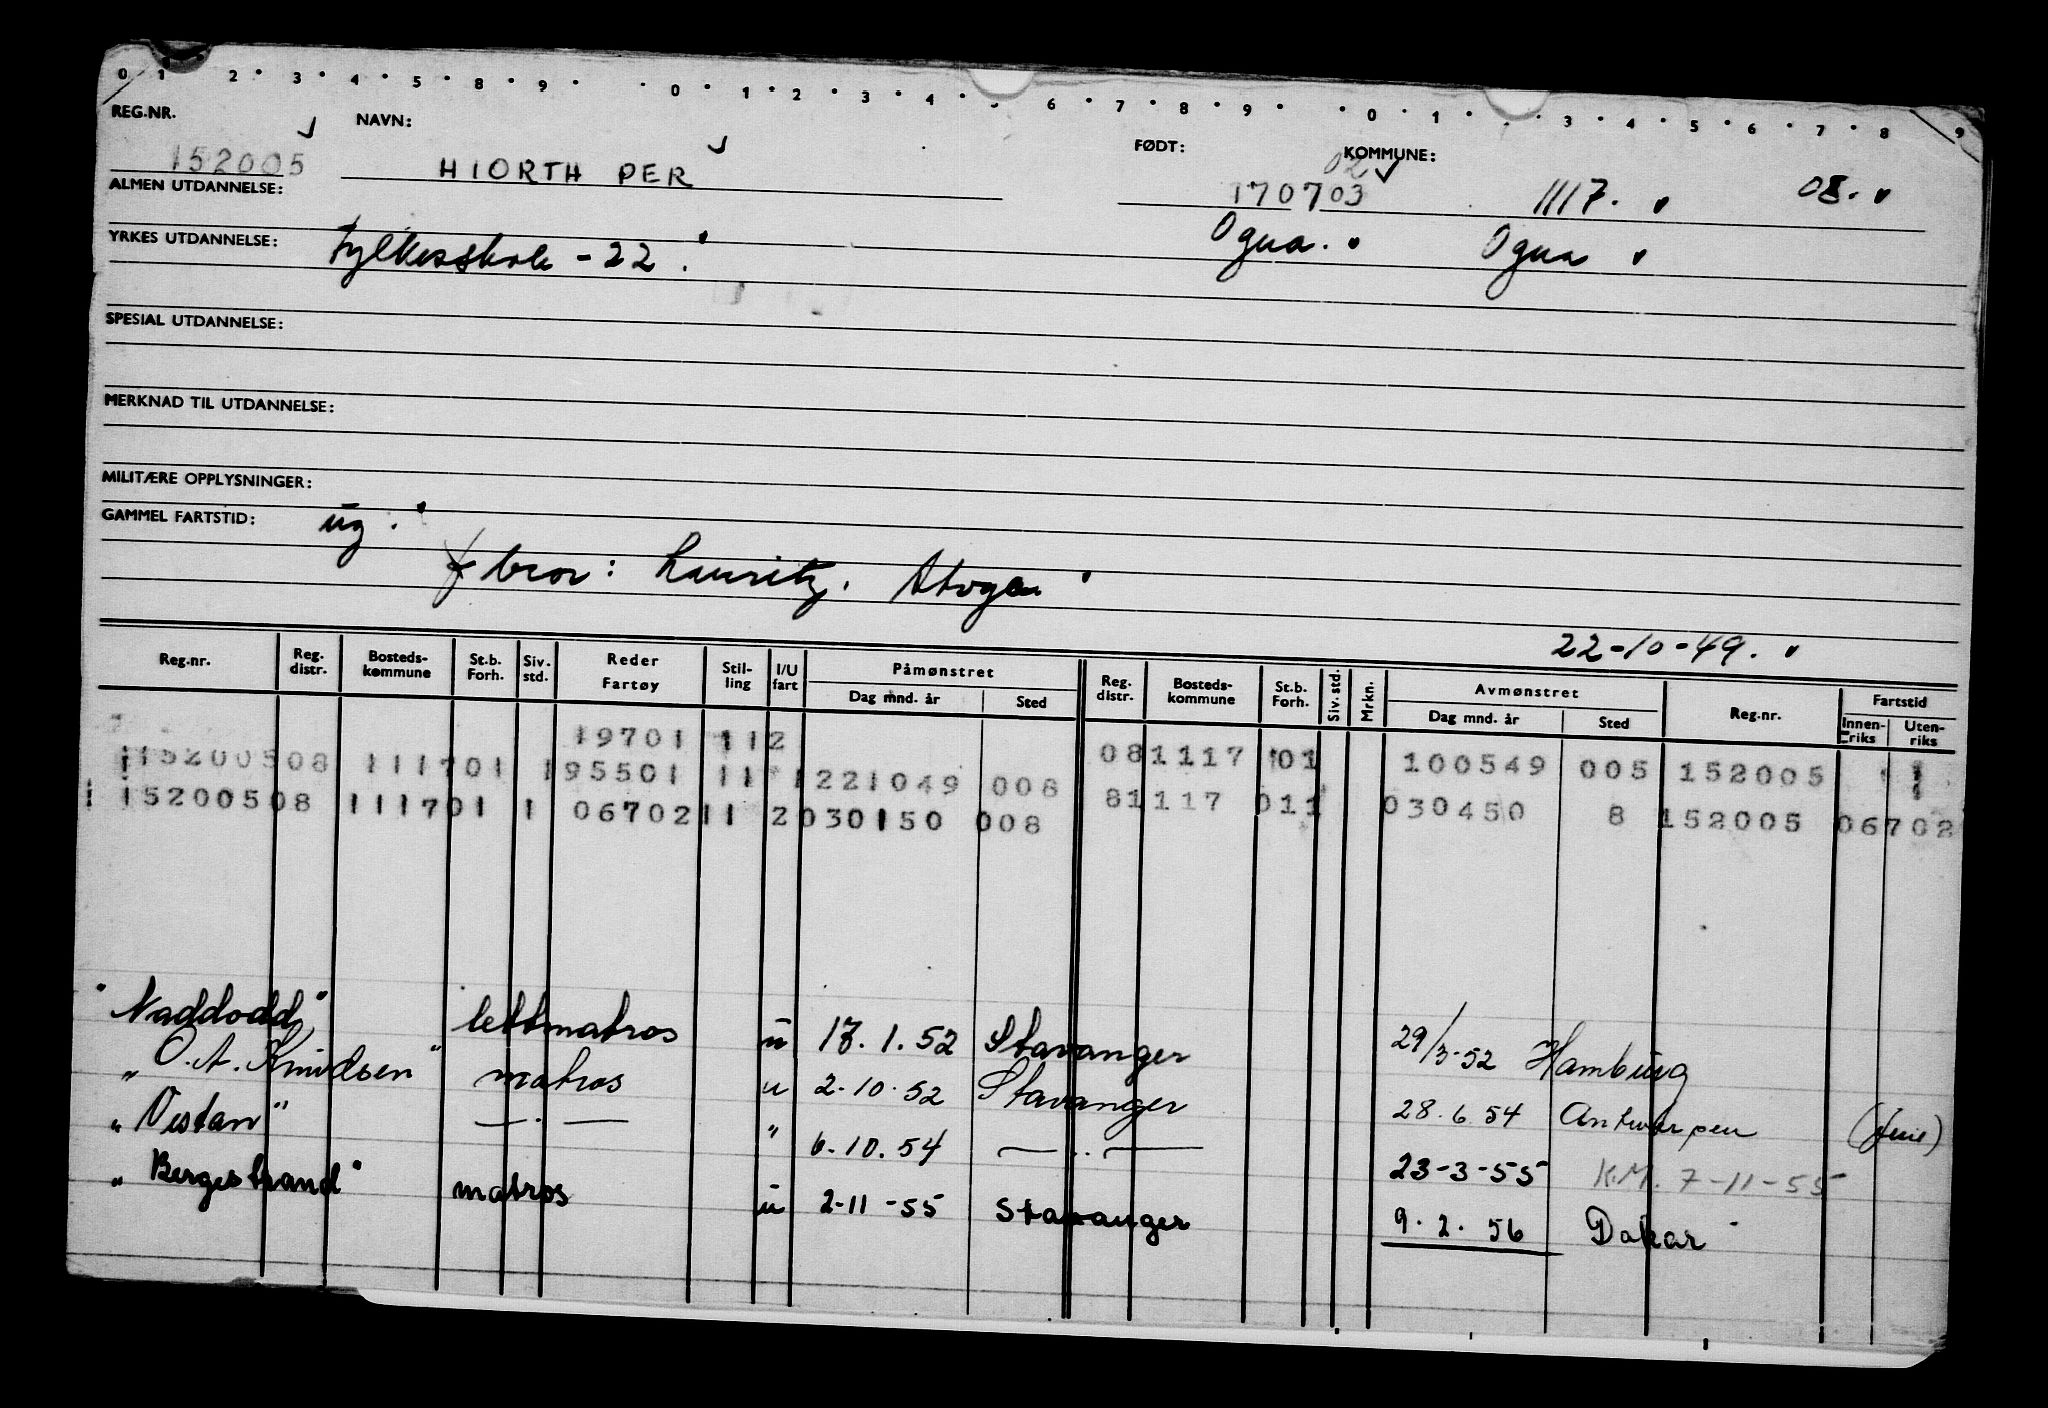 0 1 2 3 4 5 8 9 0 1 2 3 4 5 6 7 8 9 0 1 3 4 5 6 7 8 9
REG.NR. NAVN: FØDT: KOMMUNE:
152005 HIORTH PER 170703 02 1117. 08.
ALMEN UTDANNELSE:
Fylkesskole - 22. Ogna. Ogna
YRKES UTDANNELSE:
SPESIAL UTDANNELSE:
MERKNAD TIL UTDANNELSE:
MILITÆRE OPPLYSNINGER:
GAMMEL FARTSTID: ug.
bror: Lauritz.
22-10-49.
Reg.nr. Reg. distr. Bosteds-kommune St.b. Forh. Siv. std. Reder Fartøy Stil-ling I/U fart Påmønstret Reg. distr. Bosteds-kommune St.b. Forh. Siv. std. Mrkn. Avmønstret Reg.nr. Fartstid
Dag mnd. år Sted Dag mnd. år Sted Innen-riks Uten-riks
19701 112 081117 01 100549 005 152005
115200508 111701 195501 11 1221049 008 81117 011 030450 8 152005 06702
1 15200508 111701 1 0670211 2030150 008
"Naddodd" lettmatros u 17.1.52 Stavanger 29/3-52 Hamburg
"O.A. Knudsen" matros u 2-10-52 Stavanger 28.6.54 Antwerpen
"Vistan" —.— " 6.10.54 —..— 23-3-55 K.M. 7-11-55
"Bergestrand" matros u 2-11-55 Stavanger 9.2.56 Dakar